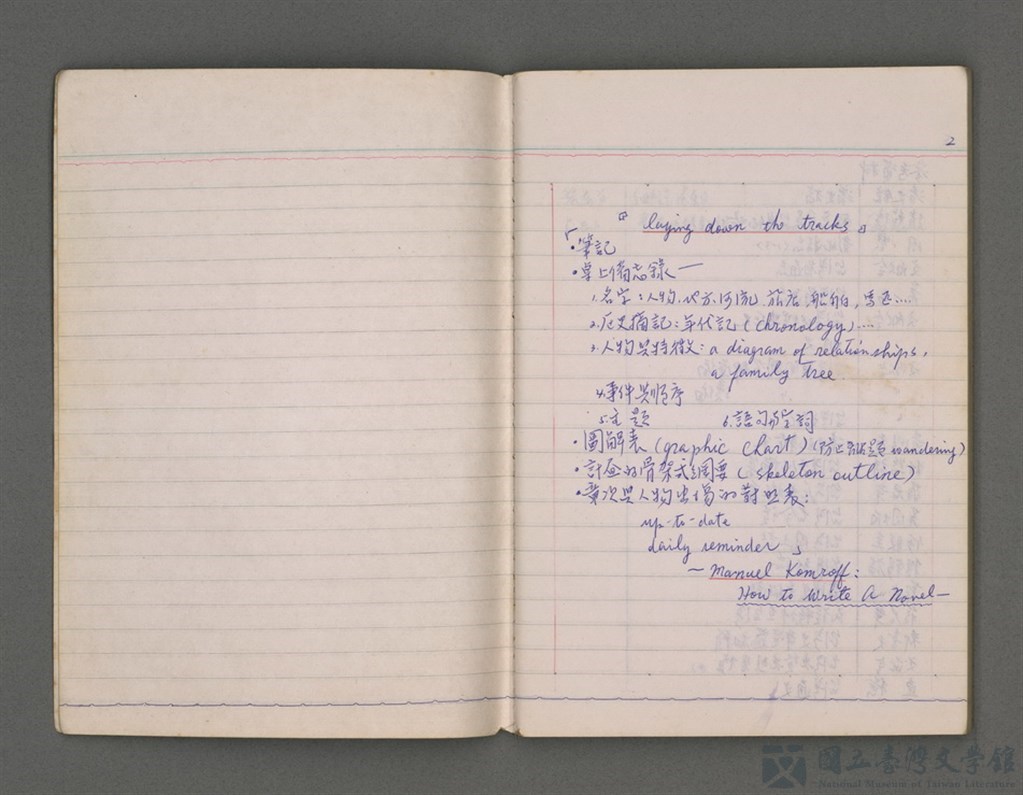 2
『laying down the tracks』
「•筆記
•桌上備忘錄—
1.名字：人物、地方、河流、旅店、船舶，馬匹....
2.历史摘記：年代記(chronology)....
3.人物與特徵：a diagram of relationships,
a family tree.
4.事件與順序
5.主題 6.語句與字詞
•圖解表(graphic chart)(防止離題wandering)
•計画的骨架或綱要(skeleton outline)
•章次與人物出場的對照表：
up-to-date
daily reminder」
—Manuel Komroff:
How to Write A Novel—
國立臺灣文學館
National Museum of Taiwan Literature